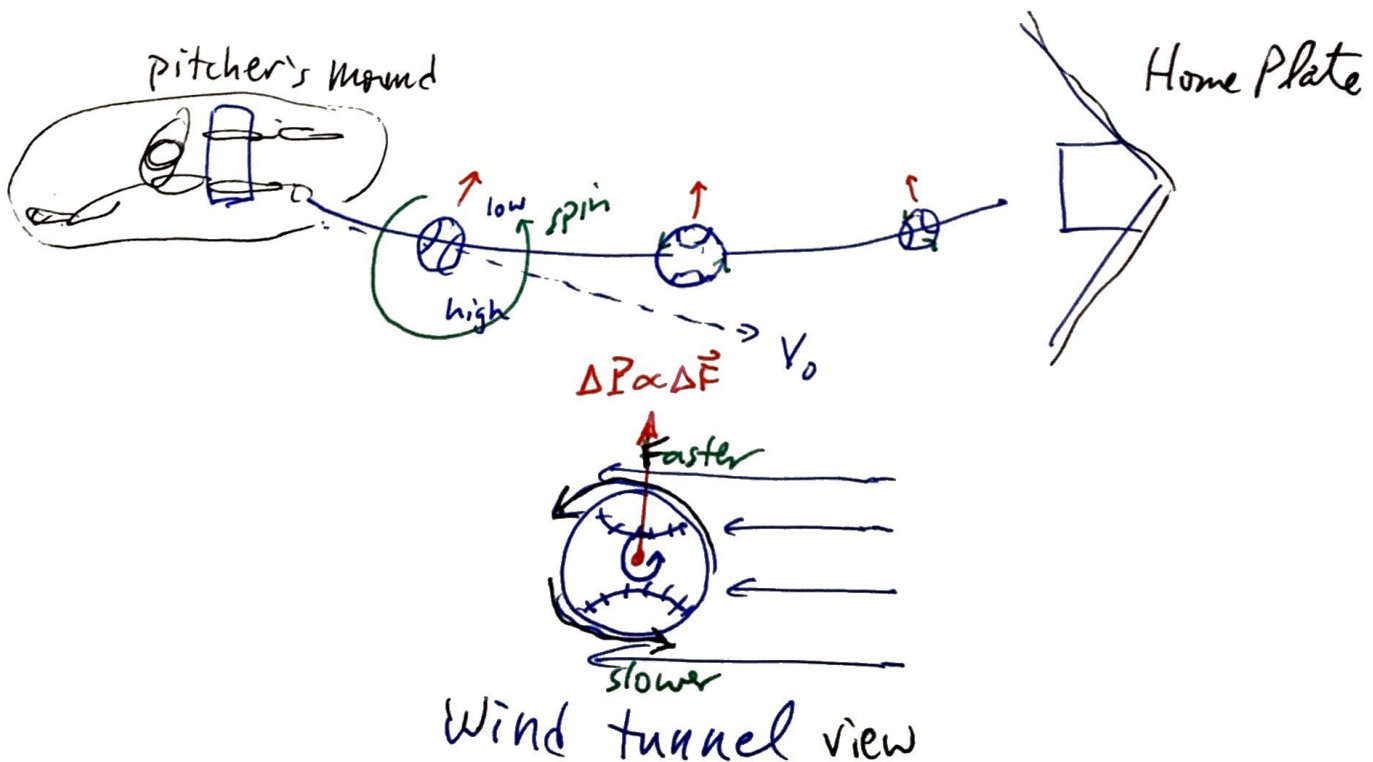 pitcher's mound
Home Plate
low
spin
high
V₀
ΔP∝ΔF⃗
Faster
slower
Wind tunnel view